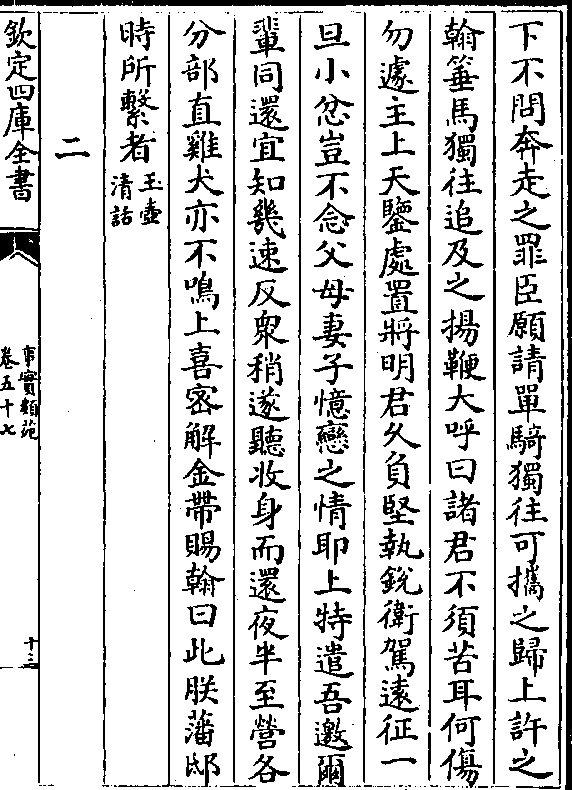 下不問奔走之罪臣願請單騎獨往可攜之歸上許之
翰箠馬獨往追及之揚鞭大呼曰諸君不須苦耳何傷
勿遽主上天鑒處置將明君久負堅執銳衛駕遠征一
旦小忿豈不念父母妻子憶戀之情耶上特遣吾邀爾
輩同還宜知幾速反衆稍遂聽收身而還夜半至營各
分部直雞犬亦不鳴上喜密解金帶賜翰曰此朕藩邸
時所繫者玉壺清話
二
欽定四庫全書
事實類苑
卷五十七
十三